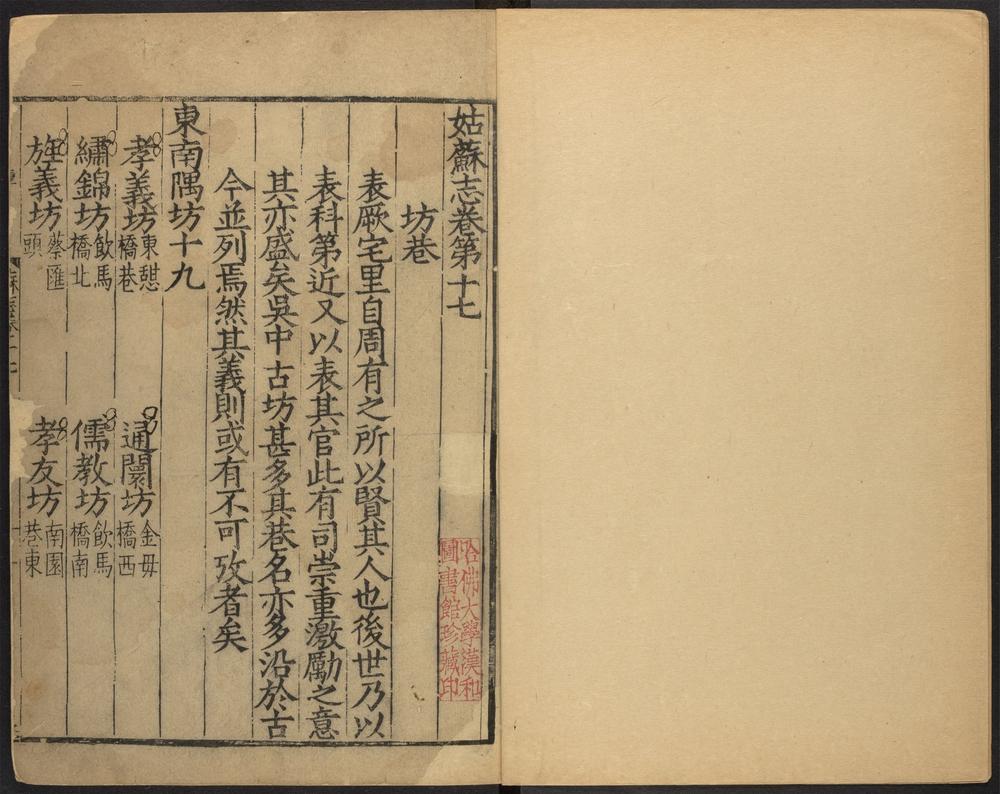 姑蘇志卷第十七
坊巷
表厥宅里自周有之所以賢其人也後世乃以
表科第近又以表其官此有司崇重激勵之意
其亦盛矣吳中古坊甚多其巷名亦多沿於古
今並列焉然其義則或有不可攷者矣
東南隅坊十九
孝義坊 東憇橋巷 通闤坊 金毋橋西
繡錦坊 飲馬橋北 儒教坊 飲馬橋南
旌義坊 蔡匯頭 孝友坊 南園巷東
哈佛大學漢和
圖書館珍藏印